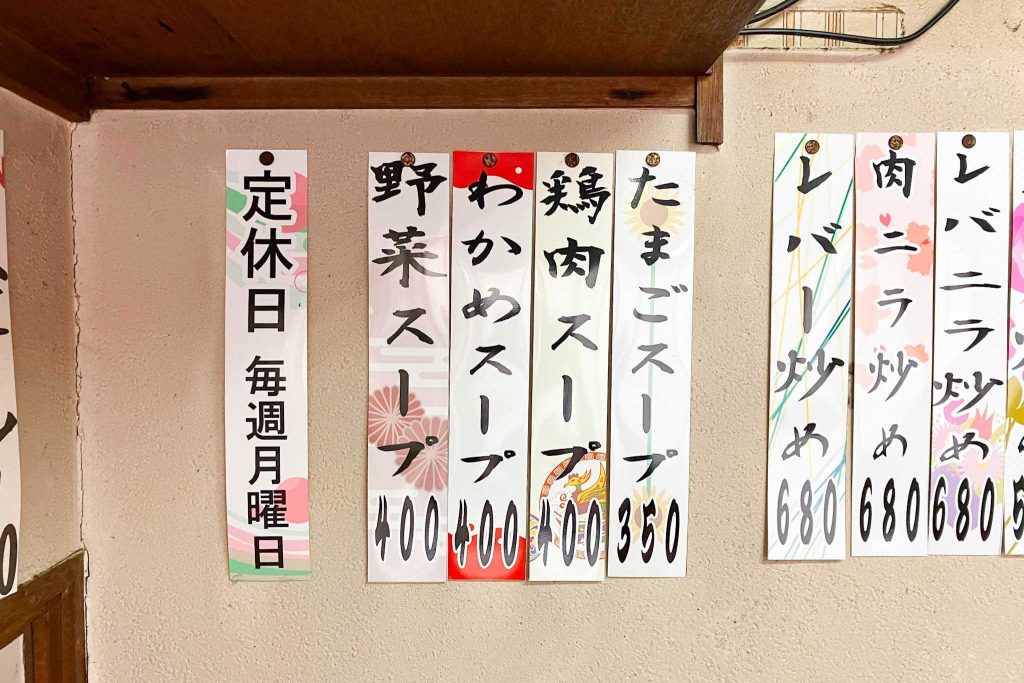 定休日 毎週月曜日
野菜スープ 400
わかめスープ 400
鶏肉スープ 400
たまごスープ 350
レバー炒め 680
肉ニラ炒め 680
レバニラ炒め 680